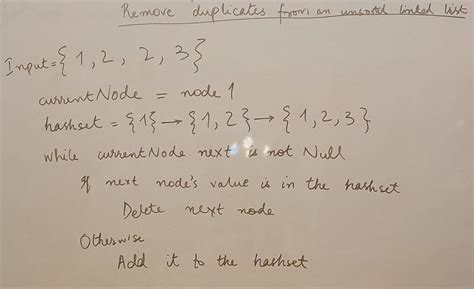 Remove duplicates from an unsorted linked list
Input = { 1, 2, 2, 3 }
currentNode = node 1
hashset = { 1 } → { 1, 2 } → { 1, 2, 3 }
while currentNode.next is not Null
If next node's value is in the hashset
Delete next node
Otherwise
Add it to the hashset